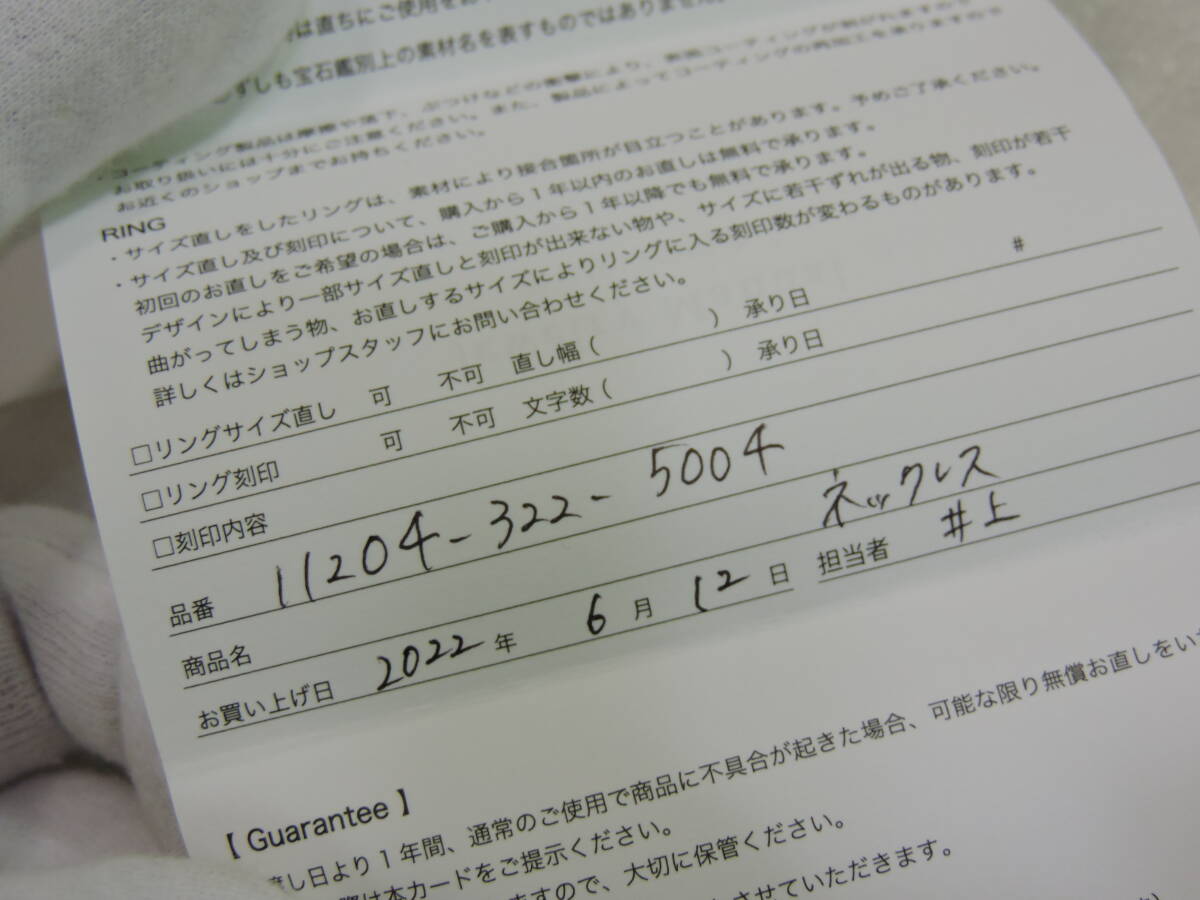 は直ちにご使用を
ずしも宝石鑑別上の素材名を表すものではありません
・コーティング製品は摩擦や落下、ぶつけなどの衝撃により、表面コーティングが剥がれますので
お取り扱いには十分にご注意ください。また、製品によってコーティングの再加工を承りますので
お近くのショップまでお持ちください。
RING
・サイズ直しをしたリングは、素材により接合箇所が目立つことがあります。予めご了承ください。
・サイズ直し及び刻印について、購入から1年以内のお直しは無料で承ります。
初回のお直しをご希望の場合は、ご購入から1年以降でも無料で承ります。
デザインにより一部サイズ直しと刻印が出来ない物や、サイズに若干ずれが出る物、刻印が若干
曲がってしまう物、お直しするサイズによりリングに入る刻印数が変わるものがあります。
詳しくはショップスタッフにお問い合わせください。
□リングサイズ直し 可 不可 直し幅 ( ) 承り日 #
□リング刻印 可 不可 文字数 ( ) 承り日
□刻印内容
品番 11204-322-5004
商品名 ネックレス
お買い上げ日 2022 年 6 月 12 日 担当者 井上
【 Guarantee 】
渡し日より1年間、通常のご使用で商品に不具合が起きた場合、可能な限り無償お直しをいた
際は本カードをご提示ください。
ますので、大切に保管ください。
させていただきます。